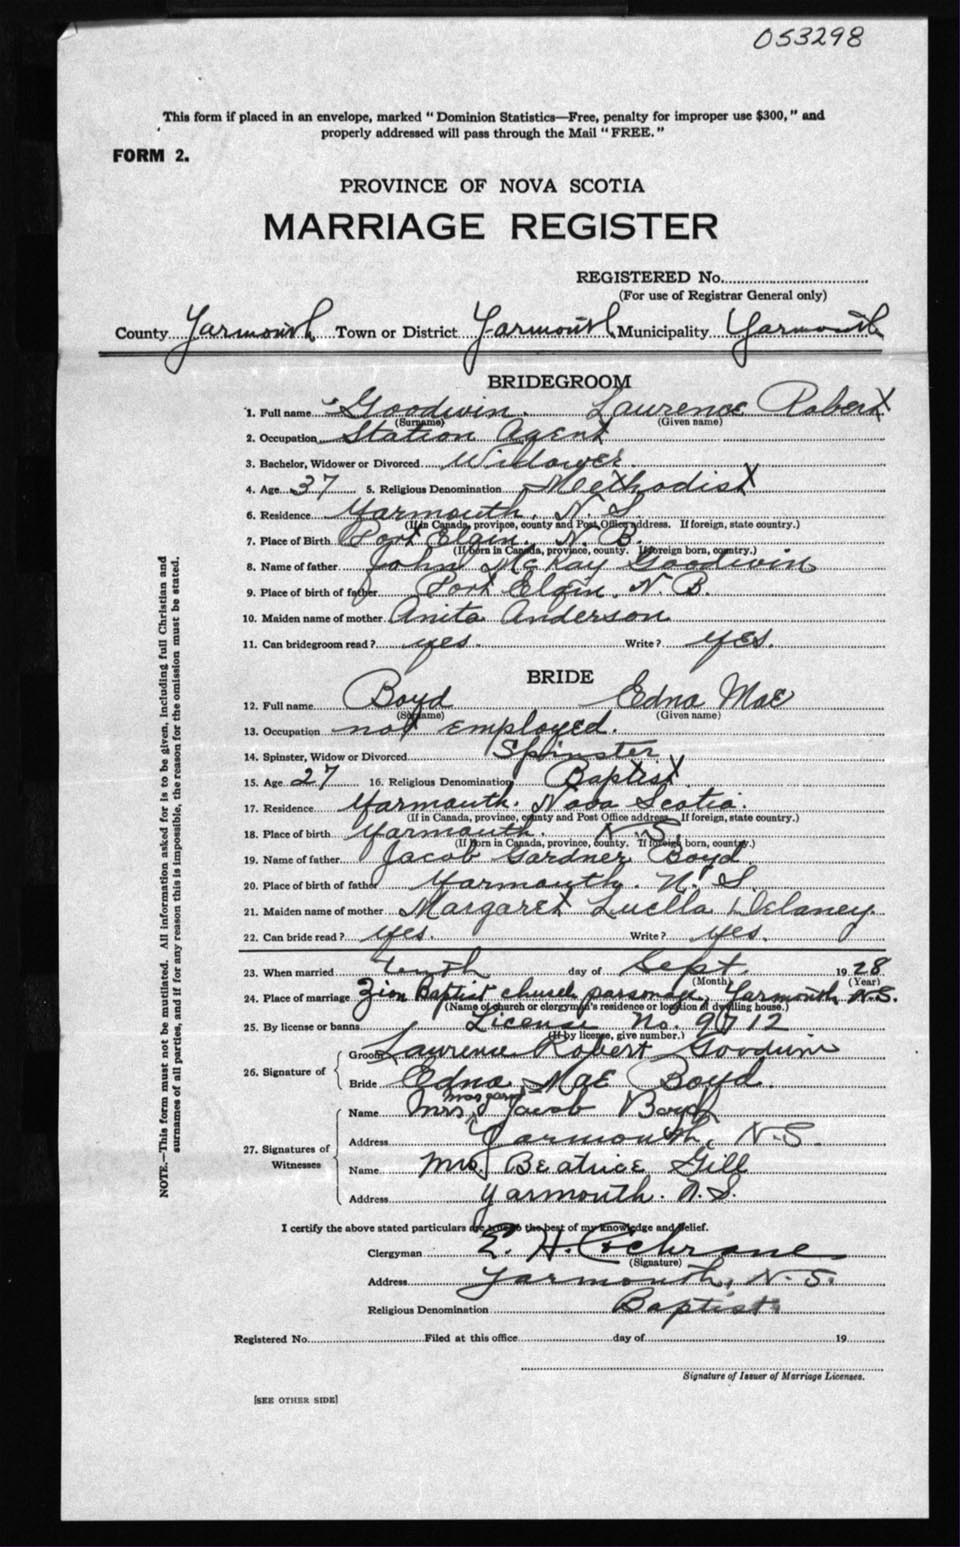 053298
This form if placed in an envelope, marked "Dominion Statistics—Free, penalty for improper use $300," and
properly addressed will pass through the Mail "FREE."
FORM 2.
PROVINCE OF NOVA SCOTIA
MARRIAGE REGISTER
REGISTERED No.
(For use of Registrar General only)
County Yarmouth Town or District Yarmouth Municipality Yarmouth
BRIDEGROOM
1. Full name Goodwin Laurence Robert
(Surname) (Given name)
2. Occupation Station Agent
3. Bachelor, Widower or Divorced Widower
4. Age 37 5. Religious Denomination Methodist
6. Residence Yarmouth. N.S.
(If in Canada, province, county and Post Office address. If foreign, state country.)
7. Place of Birth Port Elgin. N.B.
(If born in Canada, province, county. If foreign born, country.)
8. Name of father John McKay Goodwin
9. Place of birth of father Port Elgin. N.B.
10. Maiden name of mother Anita Anderson
11. Can bridegroom read? yes. Write? yes.
BRIDE
12. Full name Boyd Edna Mae
(Surname) (Given name)
13. Occupation not employed.
14. Spinster, Widow or Divorced Spinster
15. Age 27 16. Religious Denomination Baptist
17. Residence Yarmouth. Nova Scotia.
(If in Canada, province, county and Post Office address. If foreign, state country.)
18. Place of birth Yarmouth. N.S.
(If born in Canada, province, county. If foreign born, country.)
19. Name of father Jacob Gardner Boyd
20. Place of birth of father Yarmouth. N.S.
21. Maiden name of mother Margaret Luella Delaney.
22. Can bride read? yes. Write? yes.
23. When married tenth day of Sept. 1928
(Month) (Year)
24. Place of marriage Zion Baptist church parsonage, Yarmouth N.S.
(Name of church or clergyman's residence or location of dwelling house.)
25. By license or banns License No. 9712
(If by license, give number.)
26. Signature of
Groom Laurence Robert Goodwin
Bride Edna Mae Boyd.
27. Signatures of Witnesses
Name Mrs Jacob Boyd
Address Yarmouth, N.S.
Name Mrs. Beatrice Gill
Address Yarmouth. N.S.
I certify the above stated particulars are true to the best of my knowledge and belief.
Clergyman E. H. Cochrane
(Signature)
Address Yarmouth, N.S.
Religious Denomination Baptist
Registered No. Filed at this office day of 19
Signature of Issuer of Marriage Licenses.
[SEE OTHER SIDE]
NOTE.—This form must not be mutilated. All information asked for is to be given, including full Christian and
surnames of all parties, and if for any reason this is impossible, the reason for the omission must be stated.